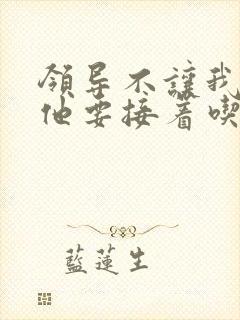 领导不讓我
他要接着喫
藍蓮生